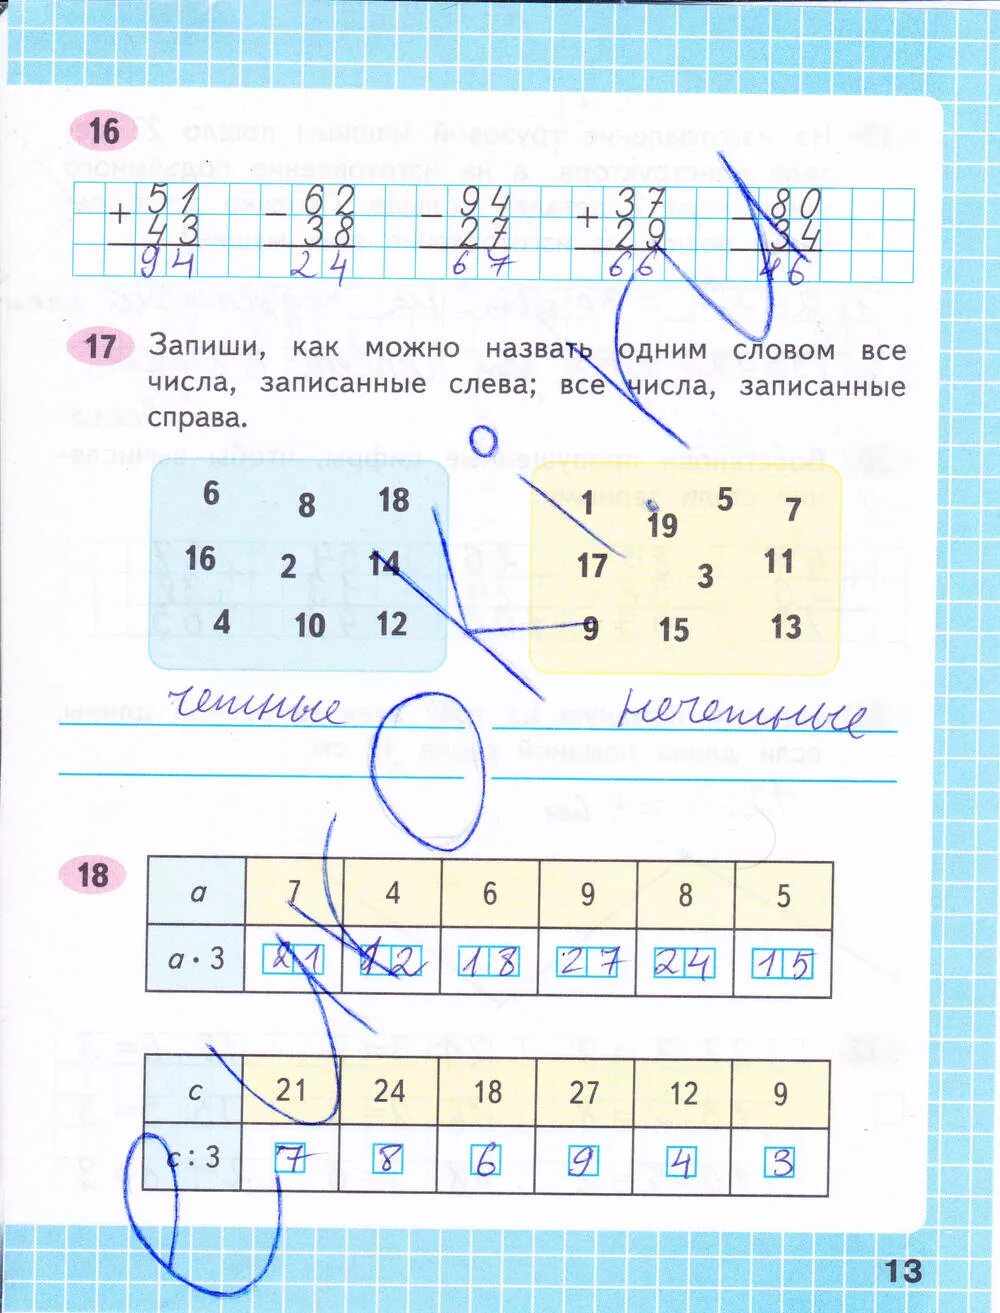 16
+ 51 - 62 - 94 + 37 - 80
43 38 27 29 34
94 24 67 66 46
17 Запиши, как можно назвать одним словом все
числа, записанные слева; все числа, записанные
справа.
6 8 18 1 19 5 7
16 2 14 17 3 11
4 10 12 9 15 13
четные нечетные
18 a 7 4 6 9 8 5
a · 3 21 12 18 27 24 15
c 21 24 18 27 12 9
c : 3 7 8 6 9 4 3
13